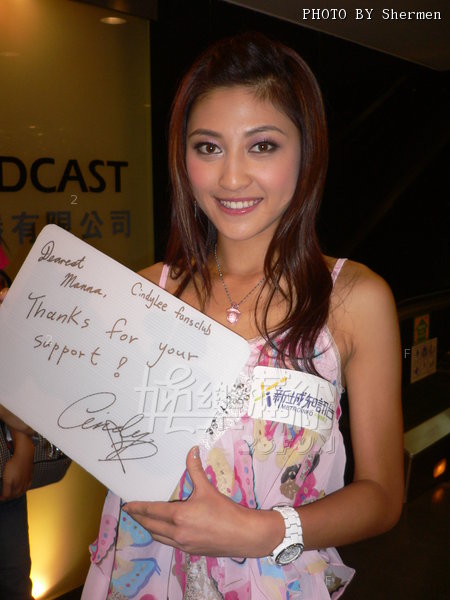 PHOTO BY Shermen
DCAST
有限公司
Dearest
Manna,
Cindylee fansclub
Thanks for your
support!
Cindy
新城知訊台